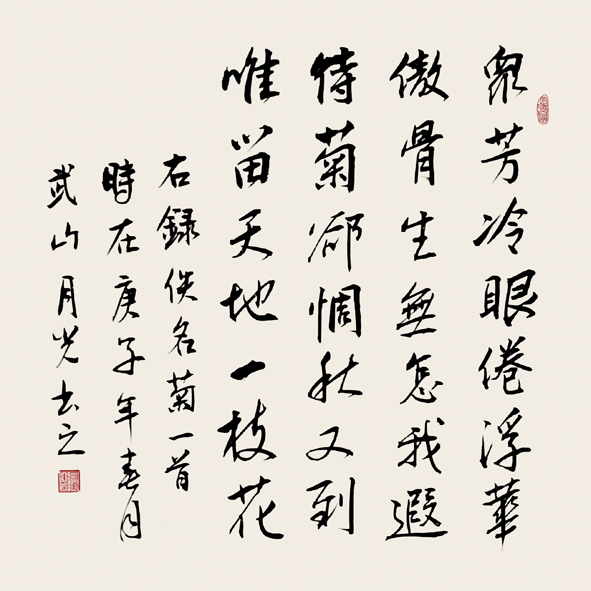 眾芳冷眼倦浮華
傲骨生無怎我遐
待菊郤惆秋又到
唯留天地一枝花
右録佚名菊一首
時在庚子年春月
武山月光书之